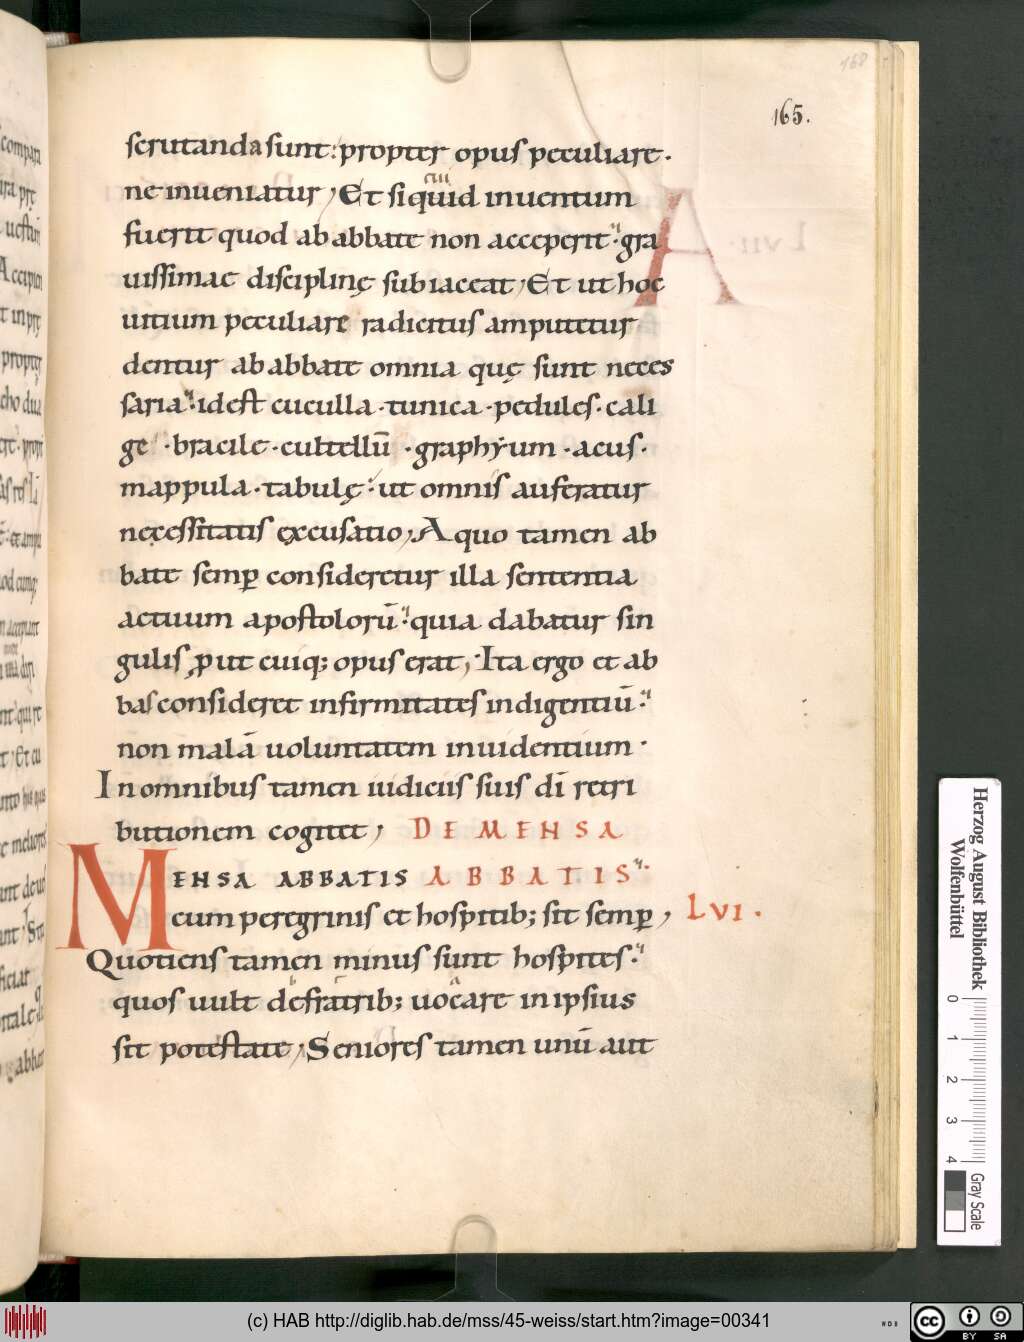 168
165.
scrutanda sunt: propter opus peculiare.
ne inueniatur, Et si quid inuentum
cui
fuerit quod ab abbate non acceperit: gra
uissimae disciplinę subiaceat, Et ut hoc
uitium peculiare radicitus amputetur
dentur ab abbate omnia quę sunt neces
saria: id est cuculla · tunica · pedules · cali
ge · bracile · cultellū · graphyum · acus ·
mappula · tabulę: ut omnis auferatur
necessitatis excusatio, A quo tamen ab
bate semp̲ consideretur illa sententia
actuum apostolorū: quia dabatur sin
gulis ꝓut cuiq; opus erat, Ita ergo et ab
bas consideret infirmitates indigentiū:
non malā uoluntatem inuidentium ·
In omnibus tamen iudiciis suis dī retri
butionem cogitet, DE MENSA
MENSA ABBATIS ABBATIS:
cum peregrinis et hospitib; sit semꝑ, LVI.
Quotiens tamen minus sunt hospites:
quos uult de fratrib; uocare in ipsius
sit potestate, Seniores tamen unū aut
Herzog August Bibliothek
Wolfenbüttel
0 1 2 3 4
Gray Scale
(c) HAB http://diglib.hab.de/mss/45-weiss/start.htm?image=00341
cc BY SA